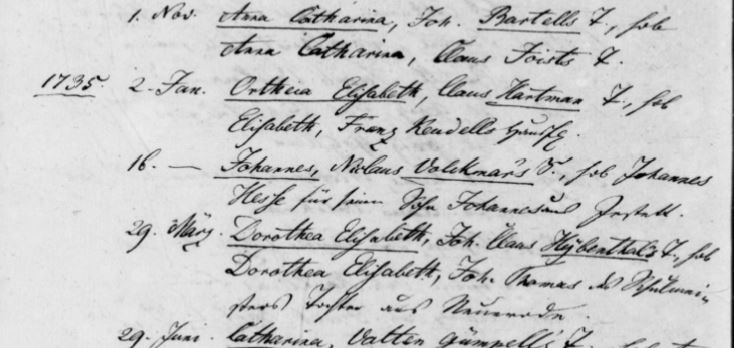 1. Nov. Anna Catharina, Joh. Bartells T., hob
Anna Catharina, Claus Foists T.
1735. 2. Jan. Ortheia Elisabeth, Claus Hartman T., hob
Elisabeth, Franz Reudells Hausfr.
16. — Johannes, Niclaus Volckmar's S., hob Johannes
Hesse für seinen Sohn Johannes aus
29. März. Dorothea Elisabeth, Joh. Claus Heÿbenthals T., hob
Dorothea Elisabeth, Joh. Thomas des Schulmei-
sters Tochter aus Neuerode.
29. Juni. Catharina, Valten Gümpell's T.